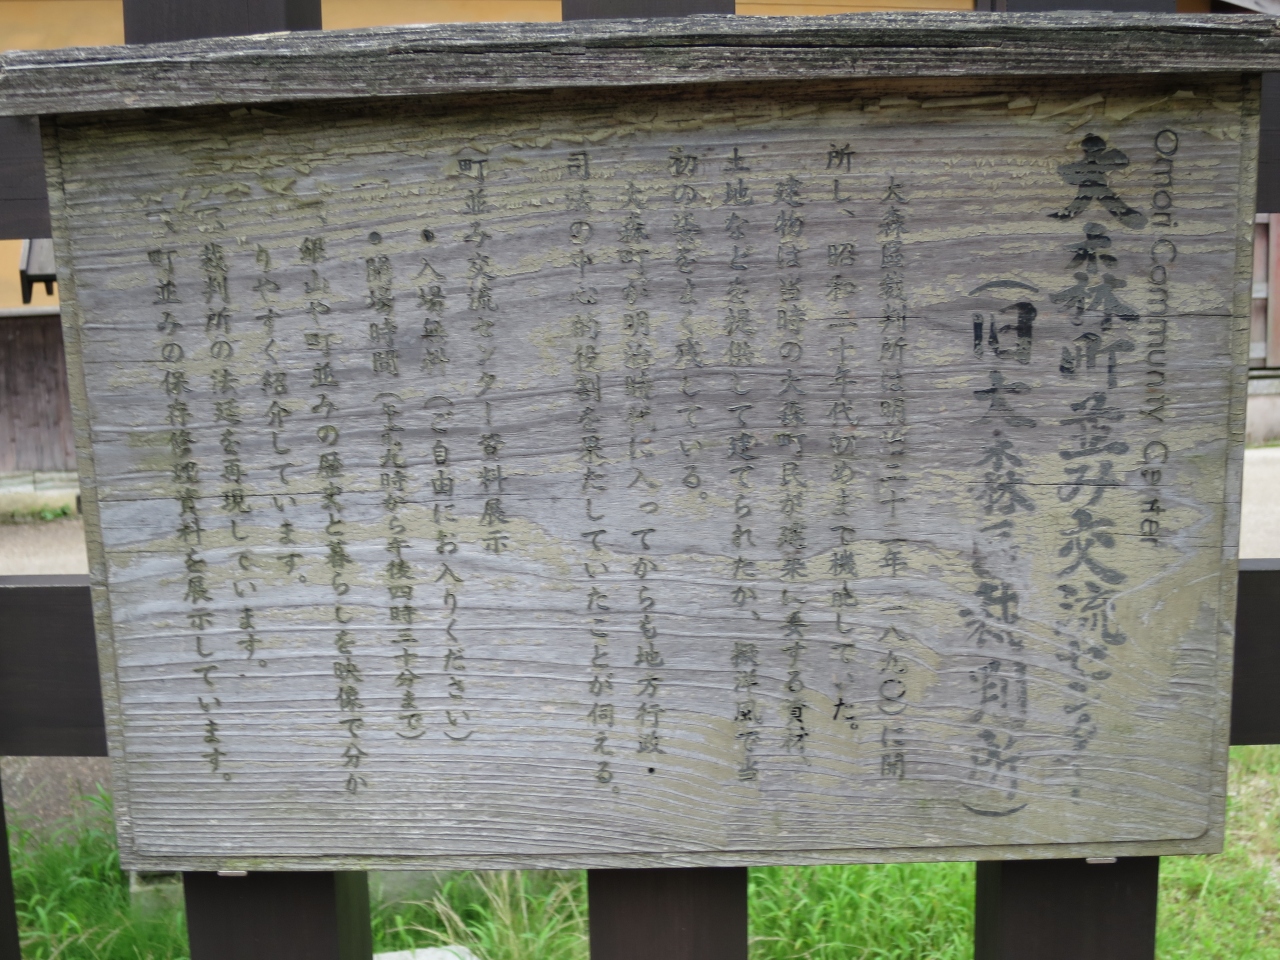 Omori Community Center
大森町並み交流センター
（旧大森区裁判所）
大森区裁判所は明治二十年（一八九〇）に開
所し、昭和二十年代初めまで機能していた。
建物は当時の大森町民が建築に要する資材、
土地などを提供して建てられたが、擬洋風で当
初の姿をよく残している。
大森町が明治時代に入ってからも地方行政・
司法の中心的役割を果たしていたことが伺える。
町並み交流センター資料展示
・入場無料（ご自由にお入りください）
・開場時間（午前九時から午後四時三十分まで）
銀山や町並みの歴史と暮らしを映像で分か
りやすく紹介しています。
裁判所の法廷を再現しています。
町並みの保存修理資料を展示しています。